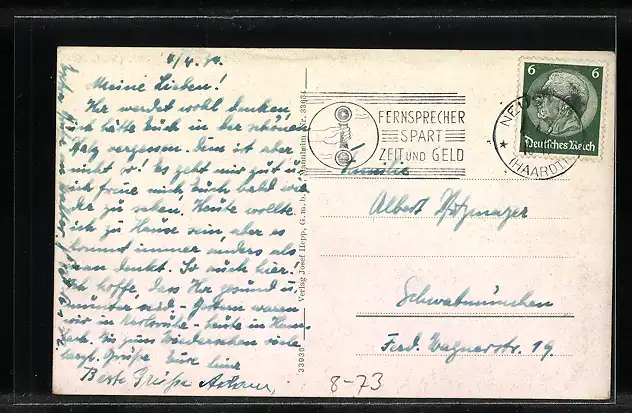 Meine Lieben!
Ihr werdet wohl denken,
ich hätte Euch in der schönen
Pfalz vergessen. Dem ist aber
nicht so! Es geht mir gut u.
ich freue mich Euch bald wie-
der zu sehen. Heute wollte
ich zu Hause sein, aber es
kommt immer anders als
man denkt. So auch hier!
Ich hoffe, dass Ihr gesund u.
munter seid - Gestern waren
wir in Karlsruhe - heute in
Bis zum Wiedersehen viele
herzl. Grüße Eure
Beste Grüße
Verlag Josef Hepp, G.m.b.H., Mannheim, Nr.
33936
FERNSPRECHER
SPART
ZEIT UND GELD
NEUST
(HAARDT)
6 6
Deutsches Reich
Familie
Albert
Schwabmünchen
Ferd. Wagnerstr. 19.
8-73